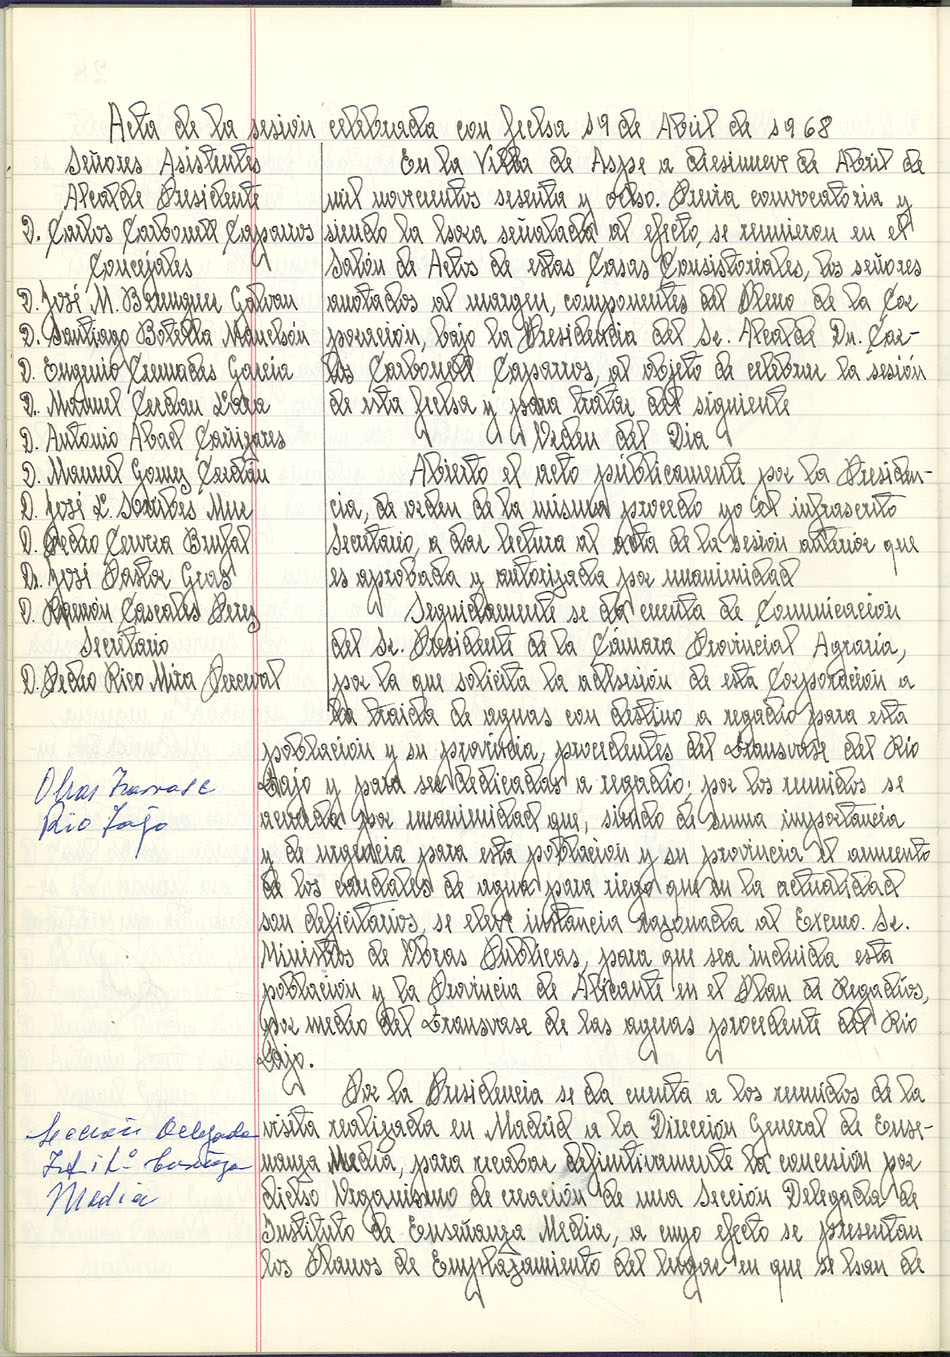 Acta de la sesión celebrada con fecha 19 de Abril de 1968
Señores Asistentes
Alcalde Presidente
D. Carlos Carbonell Caparros
Concejales
D. José M. Berenguer Galvan
D. Santiago Botella
D. Eugenio Cremades García
D. Manuel Cerdan
D. Antonio Abad Cañizares
D. Manuel Gomez Cerdán
D. José L.
D. Pedro Cervera Brufal
D. José Pastor Gras
D. Ramón Cascales Perez
Secretario
D. Pedro Rico Mira Perceval
En la Villa de Aspe a diesinueve de Abril de
mil novecientos sesenta y ocho. Previa convocatoria y
siendo la hora señalada al efecto, se reunieron en el
Salón de Actos de estas Casas Consistoriales, los señores
anotados al margen, componentes del Pleno de la Cor
poración, bajo la Presidencia del Sr. Alcalde Dn. Car-
los Carbonell Caparros, al objeto de celebrar la sesión
de esta fecha y para tratar del siguiente
Orden del Dia
Abierto el acto públicamente por la Presiden-
cia, de orden de la misma procedo yo el infrascrito
Secretario, a dar lectura al acta de la sesión anterior que
es aprobada y autorizada por unanimidad
Seguidamente se da cuenta de Comunicación
del Sr. Presidente de la Cámara Provincial Agraria,
por la que solicita la adhesión de esta Corporación a
la traida de aguas con destino a regadio para esta
población y su provincia, procedentes del Transvase del Rio
Tajo y para ser dedicadas a regadio; por los reunidos se
acuerda por unanimidad que, siendo de suma importancia
y de urgencia para esta población y su provincia el aumento
de los caudales de agua para riego que en la actualidad
son deficitarios, se eleve instancia razonada al Excmo. Sr.
Ministros de Obras Públicas, para que sea incluida esta
población y la Provincia de Alicante en el Plan de Regadios,
por medio del Transvase de las aguas procedente del Rio
Tajo.
Obras Transvase
Rio Tajo
Por la Presidencia se da cuenta a los reunidos de la
visita realizada en Madrid a la Dirección General de Ense-
nanza Media, para recabar definitivamente la concesión por
dicho Organismo de creación de una Sección Delegada de
Instituto de Enseñanza Media, a cuyo efecto se presentan
los Planos de Emplazamiento del lugar en que se han de
Sección Delegada
Enseñanza
Media